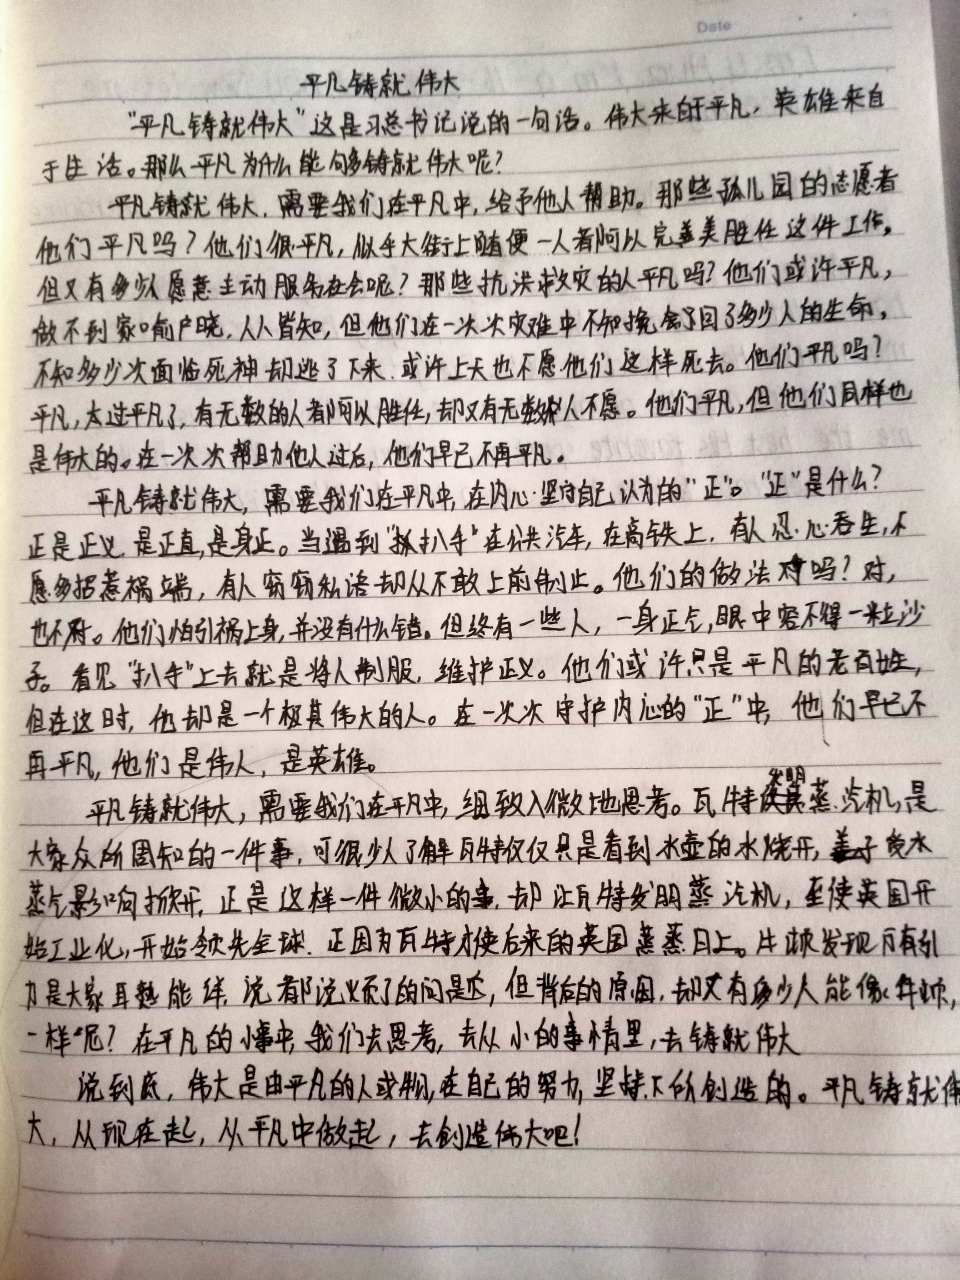 Date
平凡铸就伟大
"平凡铸就伟大"这是习总书记说的一句话。伟大来自于平凡，英雄来自
于生活。那么平凡为什么能够铸就伟大呢？
平凡铸就伟大，需要我们在平凡中，给予他人帮助。那些孤儿园的志愿者
他们平凡吗？他们很平凡，似乎大街上随便一人都可以完善美胜任这件工作。
但又有多少人愿意主动服务社会呢？那些抗洪救灾的人平凡吗？他们或许平凡，
做不到家喻户晓，人人皆知，但他们在一次次灾难中不知挽回了多少人的生命，
不知多少次面临死神却逃了下来，或许上天也不愿他们这样死去。他们平凡吗？
平凡，太过平凡了，有无数的人都可以胜任，却又有无数人不愿。他们平凡，但他们同样也
是伟大的。在一次次帮助他人过后，他们早已不再平凡。
平凡铸就伟大，需要我们在平凡中，在内心坚守自己认为的"正"。"正"是什么？
正是正义，是正直，是身正。当遇到"抓扒手"在公共汽车，在高铁上，有人忍心吞生，不
愿多招惹祸端，有人窃窃私语却从不敢上前制止。他们的做法对吗？对，
也不对。他们怕引祸上身，并没有什么错。但终有一些人，一身正气，眼中容不得一粒沙
子。看见"扒手"上去就是将人制服，维护正义。他们或许只是平凡的老百姓，
但在这时，他却是一个极其伟大的人。在一次次守护内心的"正"中，他们早已不
再平凡，他们是伟人，是英雄。
平凡铸就伟大，需要我们在平凡中，细致入微地思考。瓦特发明蒸汽机，是
大家众所周知的一件事，可很少人了解瓦特仅仅只是看到水壶的水烧开，盖子受水
蒸气影响掀开，正是这样一件微小的事，却让瓦特发明蒸汽机，至使英国开
始工业化，开始领先全球，正因为瓦特才使后来的英国蒸蒸日上。牛顿发现万有引
力是大家耳熟能详，说都说烦了的问题，但背后的原因，却又有多少人能像牛顿
一样呢？在平凡的小事中，我们去思考，去从小的事情里，去铸就伟大
说到底，伟大是由平凡的人或物，在自己的努力，坚持下所创造的。平凡铸就伟
大，从现在起，从平凡中做起，去创造伟大吧！